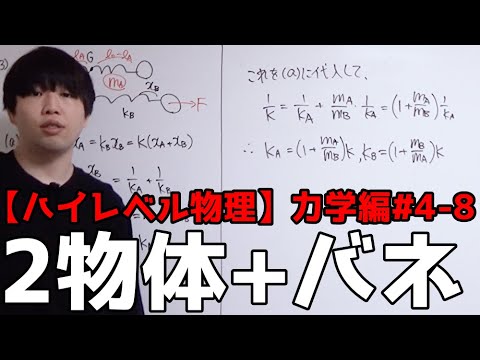 3)
lA G l₀-lA
mA
xB
kB
F
(a)
= kBxB = k(xA+xB)
xB = 1/kA + 1/kB
これを(a)に代入して、
1/k = 1/kA + mA/mB・1/kA = (1+mA/mB)1/kA
∴ kA = (1+mA/mB)k, kB = (1+mB/mA)k
【ハイレベル物理】力学編#4-8
2物体+バネ